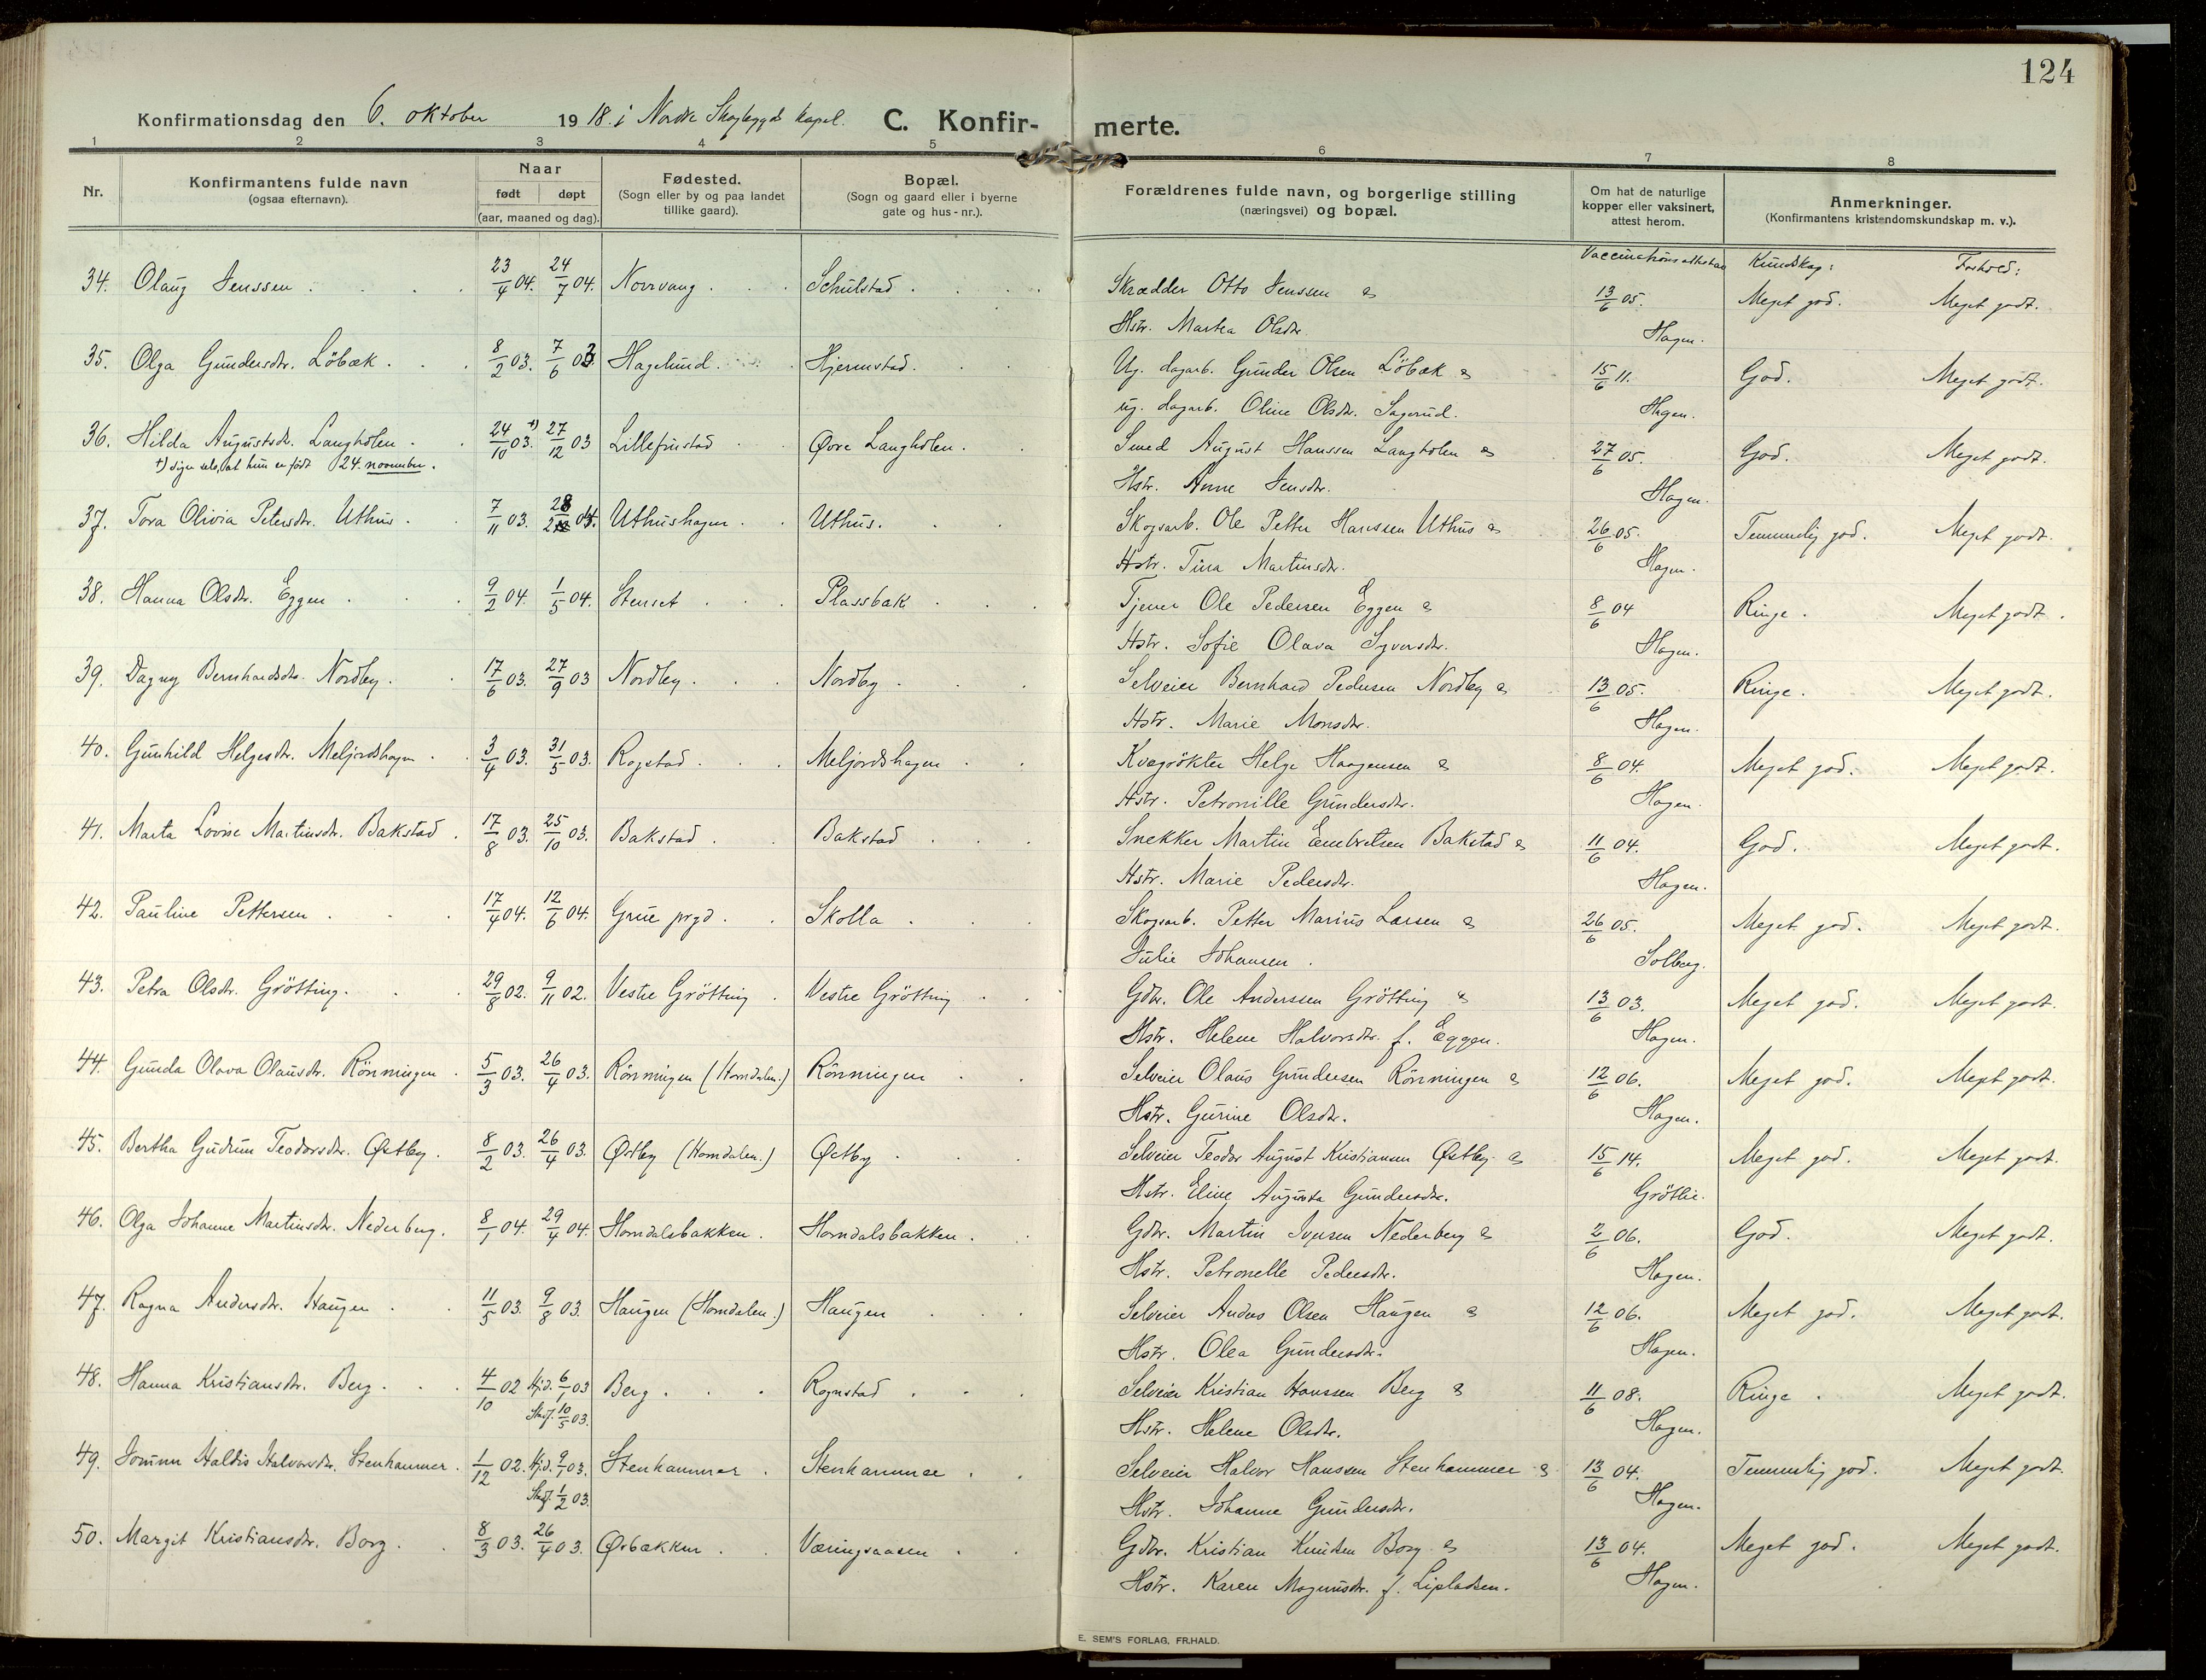 124
Konfirmationsdag den 6. oktober 1918. i Nordre Skogbygds kapel. C. Konfirmerte.
1 2 3 4 5 6 7 8
Nr. Konfirmantens fulde navn (ogsaa efternavn). Naar født døpt (aar, maaned og dag). Fødested. (Sogn eller by og paa landet tillike gaard). Bopæl. (Sogn og gaard eller i byerne gate og hus-nr.). Forældrenes fulde navn, og borgerlige stilling (næringsvei) og bopæl. Om hat de naturlige kopper eller vaksinert, attest herom. Anmerkninger. (Konfirmantens kristendomskundskap m. v.).
Kundskap: Forhold:
34. Olaug Jenssen 23/4 04. 24/7 04. Norvang Schulstad Skrædder Otto Jenssen & 13/6 05. Meget god. Meget godt.
Hstr. Martea Olsdtr. Hagen.
35. Olga Gundersdtr. Löbæk 8/2 03. 7/6 03. Hagelund Hjermstad Ug. dagarb. Gunder Olsen Löbæk & 15/6 11. God. Meget godt.
ug. dagarb. Oline Olsdtr. Sagerud. Hagen.
36. Hilda Augustsdtr. Langholen 24/10 03. +) 27/12 03 Lillefrustad Øvre Langholen Smed August Hanssen Langholen & 27/6 05. God. Meget godt.
+) siger selv, at hun er født 24. november. Hstr. Anne Jensdtr. Hagen.
37. Tora Olivia Petersdtr. Uthus 7/11 03. 28/2 04. Uthushagen Uthus. Skogsarb. Ole Petter Hanssen Uthus & 26/6 05. Temmelig god. Meget godt.
Hstr. Tina Martinsdtr. Hagen.
38. Hanna Olsdtr. Eggen 9/2 04. 1/5 04. Stenset Plassbak Tjener Ole Pedersen Eggen & 8/6 04 Ringe. Meget godt.
Hstr. Sofie Olava Syversdtr. Hagen.
39. Dagny Bernhardsdtr. Nordby. 17/6 03. 27/9 03 Nordby Nordby Selveier Bernhard Pedersen Nordby & 13/6 05. Ringe. Meget godt.
Hstr. Marie Monsdtr. Hagen.
40. Gunhild Helgesdtr. Meljordshagen 3/4 03. 31/5 03. Rogstad Meljordshagen Kvægrökter Helge Haagensen & 8/6 04. Meget god. Meget godt.
Hstr. Petronille Gundersdtr. Hagen.
41. Marta Lovise Martinsdtr. Bakstad 17/8 03. 25/10 03. Bakstad Bakstad Snekker Martin Embretsen Bakstad & 11/6 04. God. Meget godt.
Hstr. Marie Pedersdtr. Hagen.
42. Pauline Pettersen 17/4 04. 12/6 04. Grue prgd. Skolla Skogsarb. Petter Marius Larsen & 26/6 05. Meget god. Meget godt.
Julie Johansen. Solberg.
43. Petra Olsdtr. Grötting. 29/8 02. 9/11 02. Vestre Grötting Vestre Grötting Gdbr. Ole Anderssen Grötting & 13/6 03. Meget god. Meget godt.
Hstr. Helene Halvorsdtr. f. Eggen. Hagen.
44. Gunda Olava Olausdtr. Rönningen 5/3 03. 26/4 03. Rönningen (Horndalen.) Rönningen Selveier Olaus Gundersen Rönningen & 12/6 06. Meget god. Meget godt.
Hstr. Gurine Olsdtr. Hagen.
45. Bertha Gudrun Teodorsdtr. Østby. 8/2 03. 26/4 03. Østby (Horndalen.) Østby Selveier Teodor August Kristiansen Østby & 15/6 14. Meget god. Meget godt.
Hstr. Eline Augusta Gundersdtr. Gröttie.
46. Olga Johanne Martinsdtr. Nederberg. 8/1 04. 29/4 04. Horndalsbakken Horndalsbakken Gdbr. Martin Iversen Nederberg & 2/6 06. God. Meget godt.
Hstr. Petronelle Pedersdtr. Hagen.
47. Ragna Andersdtr. Haugen 11/5 03. 9/8 03. Haugen (Horndalen.) Haugen Selveier Anders Olsen Haugen & 12/6 06. Meget god. Meget godt.
Hstr. Olea Gundersdtr. Hagen.
48. Hanna Kristiansdtr. Berg 4/10 02 Hjd. 6/1 03 Berg Rognstad Selveier Kristian Hanssen Berg & 11/6 08. Ringe. Meget godt.
Stadf. 10/5 03. Hstr. Helene Olsdtr. Hagen.
49. Jorunn Haldis Halvorsdtr. Stenhammer 1/12 02. Hjd. 9/1 03. Stenhammer Stenhammer Selveier Halvor Hanssen Stenhammer & 13/6 04. Temmelig god. Meget godt.
Stadf. 1/2 03. Hstr. Johanne Gundersdtr. Hagen.
50. Margit Kristiansdtr. Borg 8/3 03. 26/4 03. Ørbækken Væringsaasen Gdbr. Kristian Knutsen Borg & 13/6 04. Meget god. Meget godt.
Hstr. Karen Magnusdtr. f. Lipladsen. Hagen.
E. SEM'S FORLAG, FR.HALD.